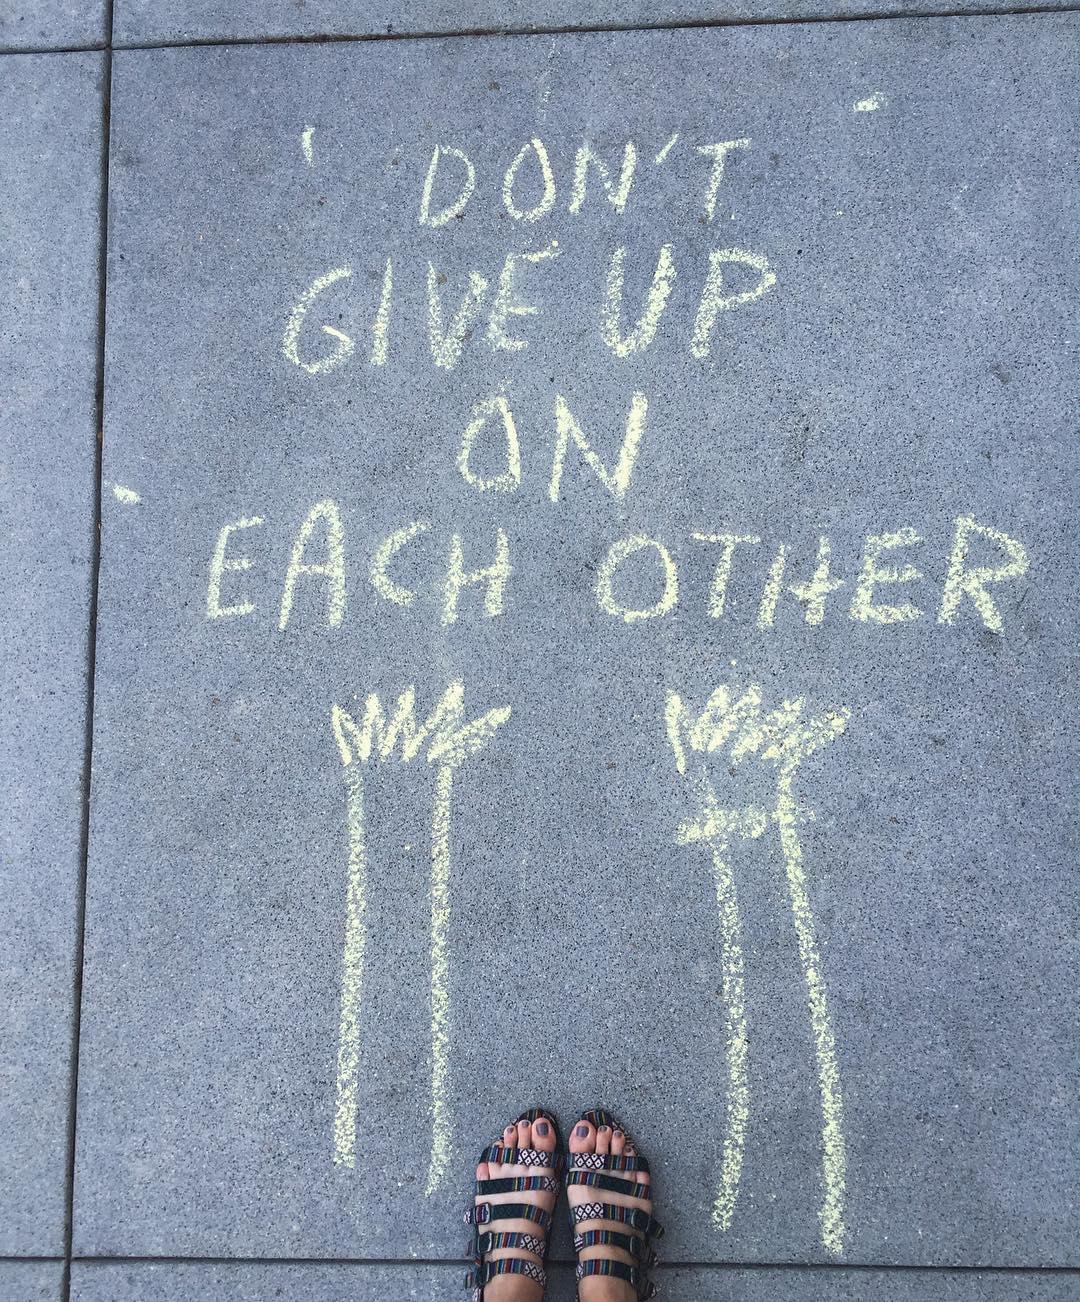 DON'T
GIVE UP
ON
EACH OTHER